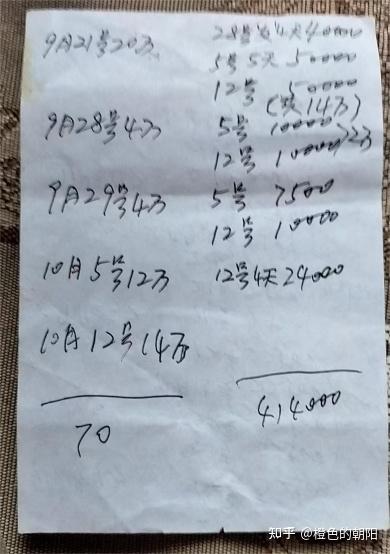 9月21号20万 28号 4天40000
5号5天 50000
12号 50000
(共14万)
9月28号4万 5号 10000
12号 10000
9月29号4万 5号 7500
12号 10000
10月5号12万 12号4天24000
10月12号14万
70 414000
知乎 @橙色的朝阳